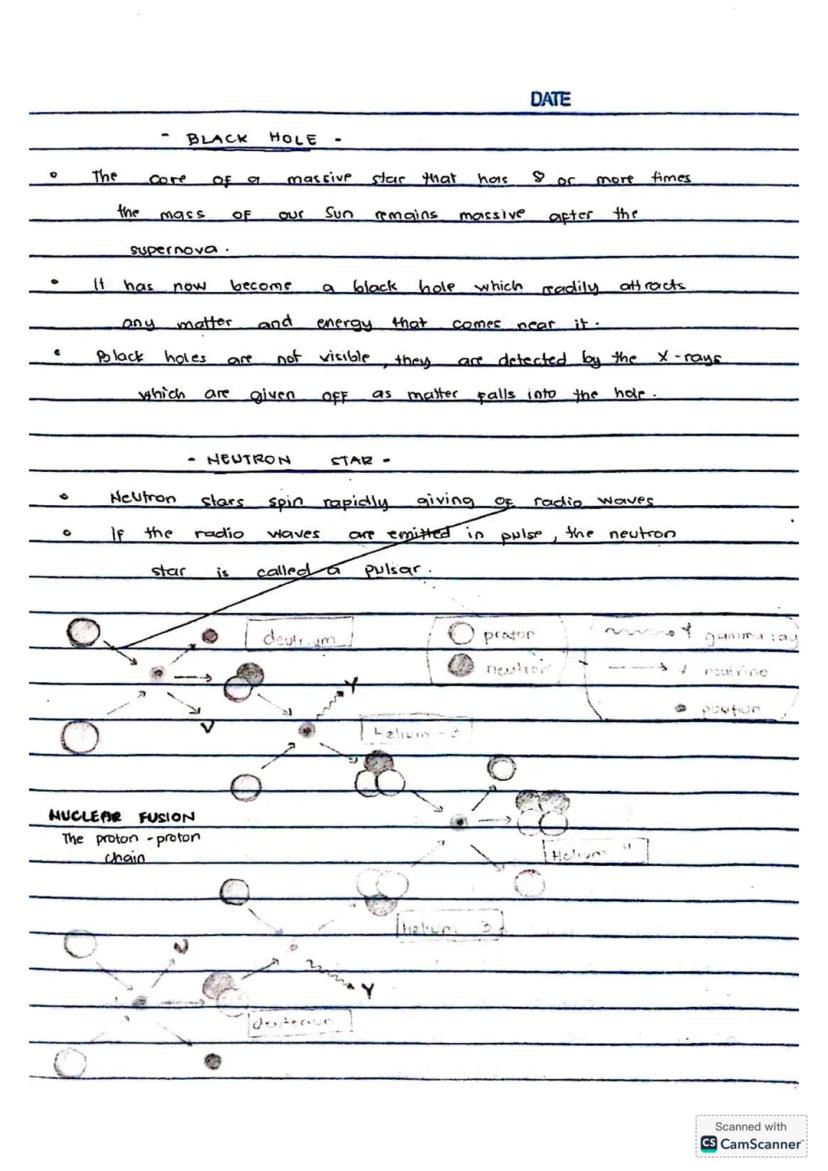 DATE
- BLACK HOLE -
• The core of a massive star that has 8 or more times
the mass of our Sun remains massive after the
supernova.
• It has now become a black hole which readily attracts
any matter and energy that comes near it.
• Black holes are not visible, they are detected by the X-rays
which are given off as matter falls into the hole.
- NEUTRON STAR -
• Neutron stars spin rapidly giving of radio waves
• If the radio waves are emitted in pulse, the neutron
star is called a pulsar.
deutrium
proton
gamma ray
neutron
γ
V
Helium - 3
NUCLEAR FUSION
The proton - proton
chain
Helium 4
Helium 3
ν
γ
deuterium
Scanned with
CS CamScanner